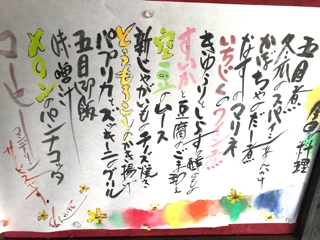 五目煮
冬瓜のスパイシーあんかけ
かぼちゃのだし煮
なすのマリネ
いちじくのワイン煮
きゅうりと
すいかと豆腐のごま和え
空豆ムース
新じゃがいものチーズ焼き
とうもろこしのかき揚げ
パプリカとズッキーニのグリル
五目御飯
味噌汁
メロンのパンナコッタ
コーヒー